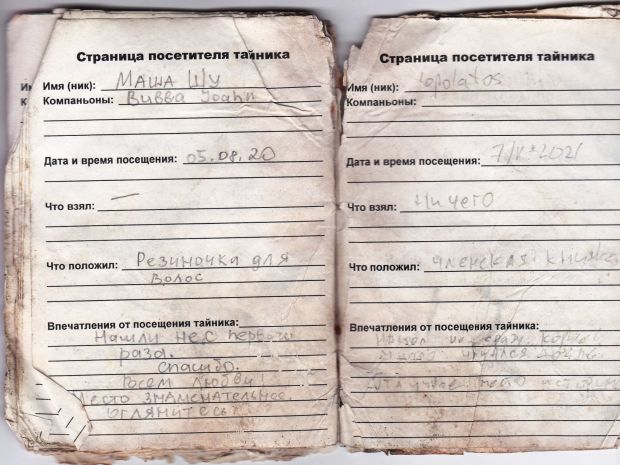 Страница посетителя тайника
Имя (ник): МАША ШУ
Компаньоны: Вивва Joahn
Дата и время посещения: 05.08.20
Что взял: —
Что положил: Резиночка для
волос
Впечатления от посещения тайника:
Нашли не с первого
раза.
Спасибо.
Всем любви!
Место знаменательное
оглянитесь
Страница посетителя тайника
Имя (ник): lopolatos
Компаньоны:
Дата и время посещения: 2021
Что взял: Ничего
Что положил: членская книжка
Впечатления от посещения тайника:
Нашел не сразу.
место